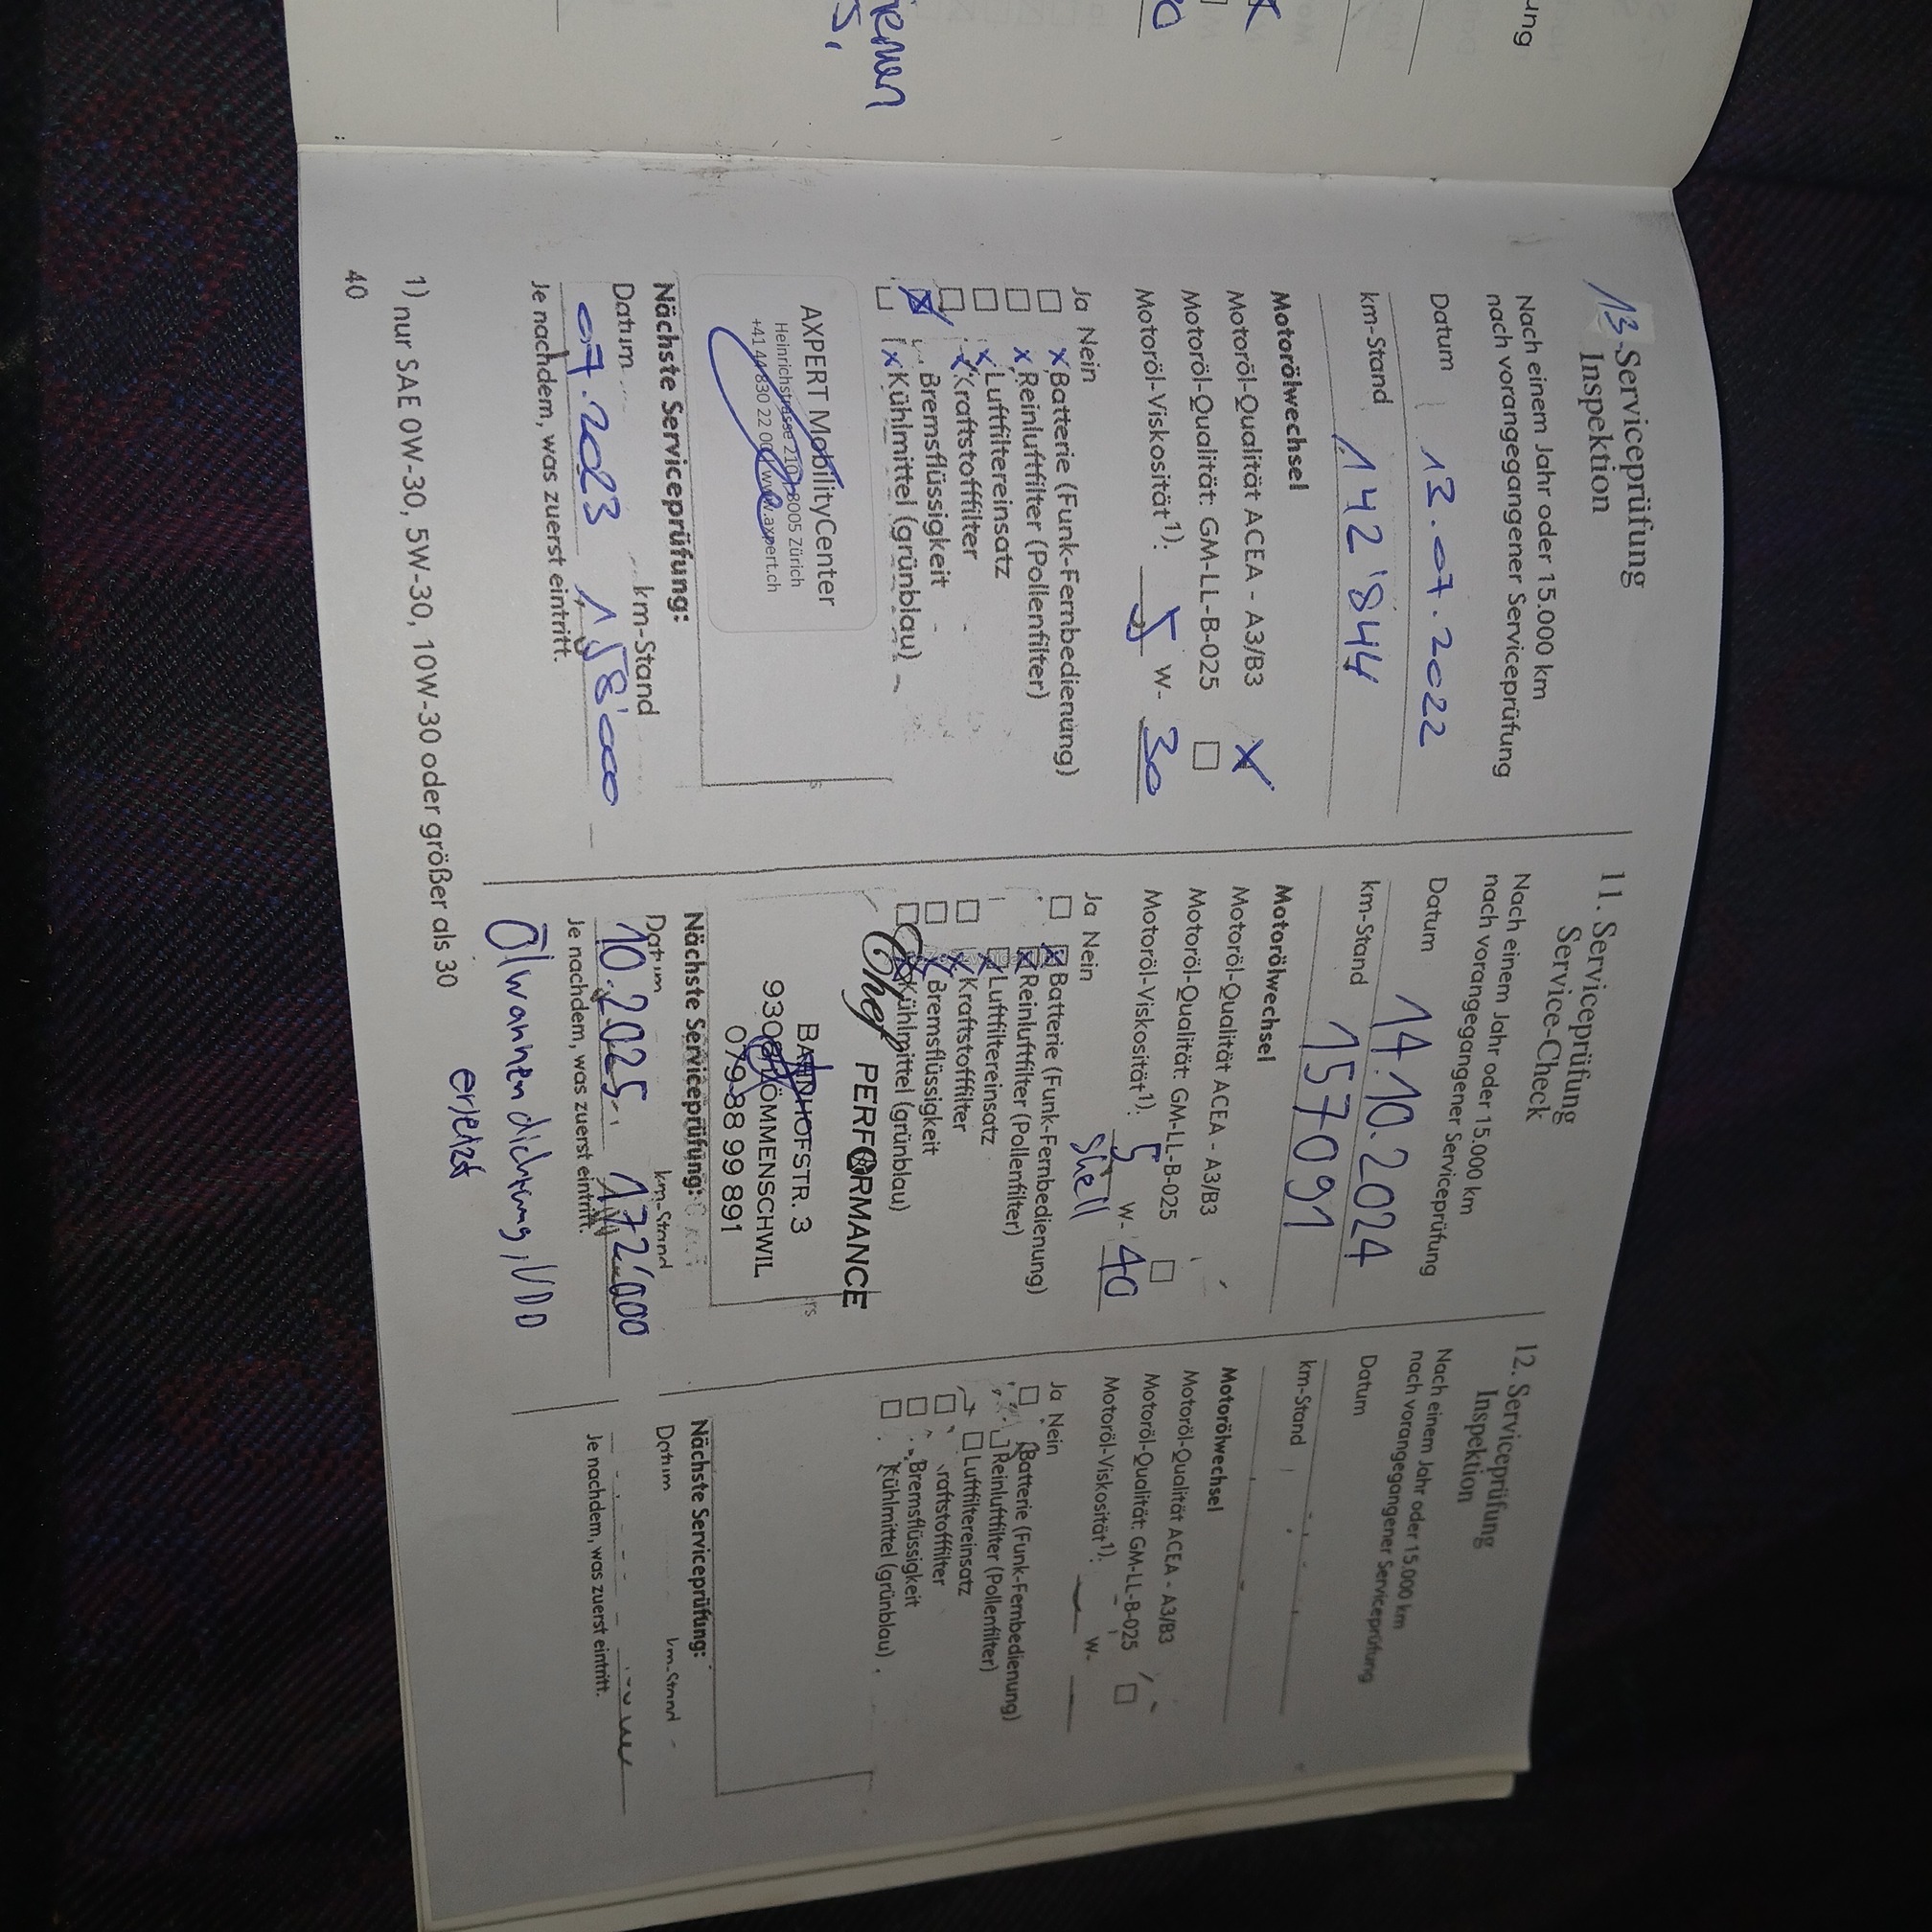 ung
ienen
13 Serviceprüfung
Inspektion
Nach einem Jahr oder 15.000 km
nach vorangegangener Serviceprüfung
Datum 13.07.2022
km-Stand 142'844
Motorölwechsel
Motoröl-Qualität ACEA - A3/B3 X
Motoröl-Qualität: GM-LL-B-025
Motoröl-Viskosität¹): 5 W- 30
Ja Nein
x Batterie (Funk-Fernbedienung)
x Reinluftfilter (Pollenfilter)
x Luftfiltereinsatz
x Kraftstofffilter
x Bremsflüssigkeit
x Kühlmittel (grünblau)
AXPERT MobilityCenter
Heinrichstrasse 210, 8005 Zürich
+41 44 830 22 00, www.axpert.ch
Nächste Serviceprüfung:
Datum km-Stand
07.2023 158'000
Je nachdem, was zuerst eintritt.
11. Serviceprüfung
Service-Check
Nach einem Jahr oder 15.000 km
nach vorangegangener Serviceprüfung
Datum 14.10.2024
km-Stand 157091
Motorölwechsel
Motoröl-Qualität ACEA - A3/B3
Motoröl-Qualität: GM-LL-B-025
Motoröl-Viskosität¹): 5 W- 40
Shell
Ja Nein
x Batterie (Funk-Fernbedienung)
x Reinluftfilter (Pollenfilter)
x Luftfiltereinsatz
x Kraftstofffilter
x Bremsflüssigkeit
x Kühlmittel (grünblau)
Chef PERFORMANCE
BAHNHOFSTR. 3
RÖMMENSCHWIL
88 99 891
Nächste Serviceprüfung:
Datum km-Stand
10.2025 172'000
Je nachdem, was zuerst eintritt.
Ölwannendichtung, VDD
ersetzt
12. Serviceprüfung
Inspektion
Nach einem Jahr oder 15.000 km
nach vorangegangener Serviceprüfung
Datum
km-Stand
Motorölwechsel
Motoröl-Qualität ACEA - A3/B3
Motoröl-Qualität: GM-LL-B-025
Motoröl-Viskosität¹): W-
Ja Nein
Batterie (Funk-Fernbedienung)
Reinluftfilter (Pollenfilter)
Luftfiltereinsatz
raftstofffilter
Bremsflüssigkeit
Kühlmittel (grünblau)
Nächste Serviceprüfung:
Datum km-Stand
Je nachdem, was zuerst eintritt.
1) nur SAE 0W-30, 5W-30, 10W-30 oder größer als 30
40